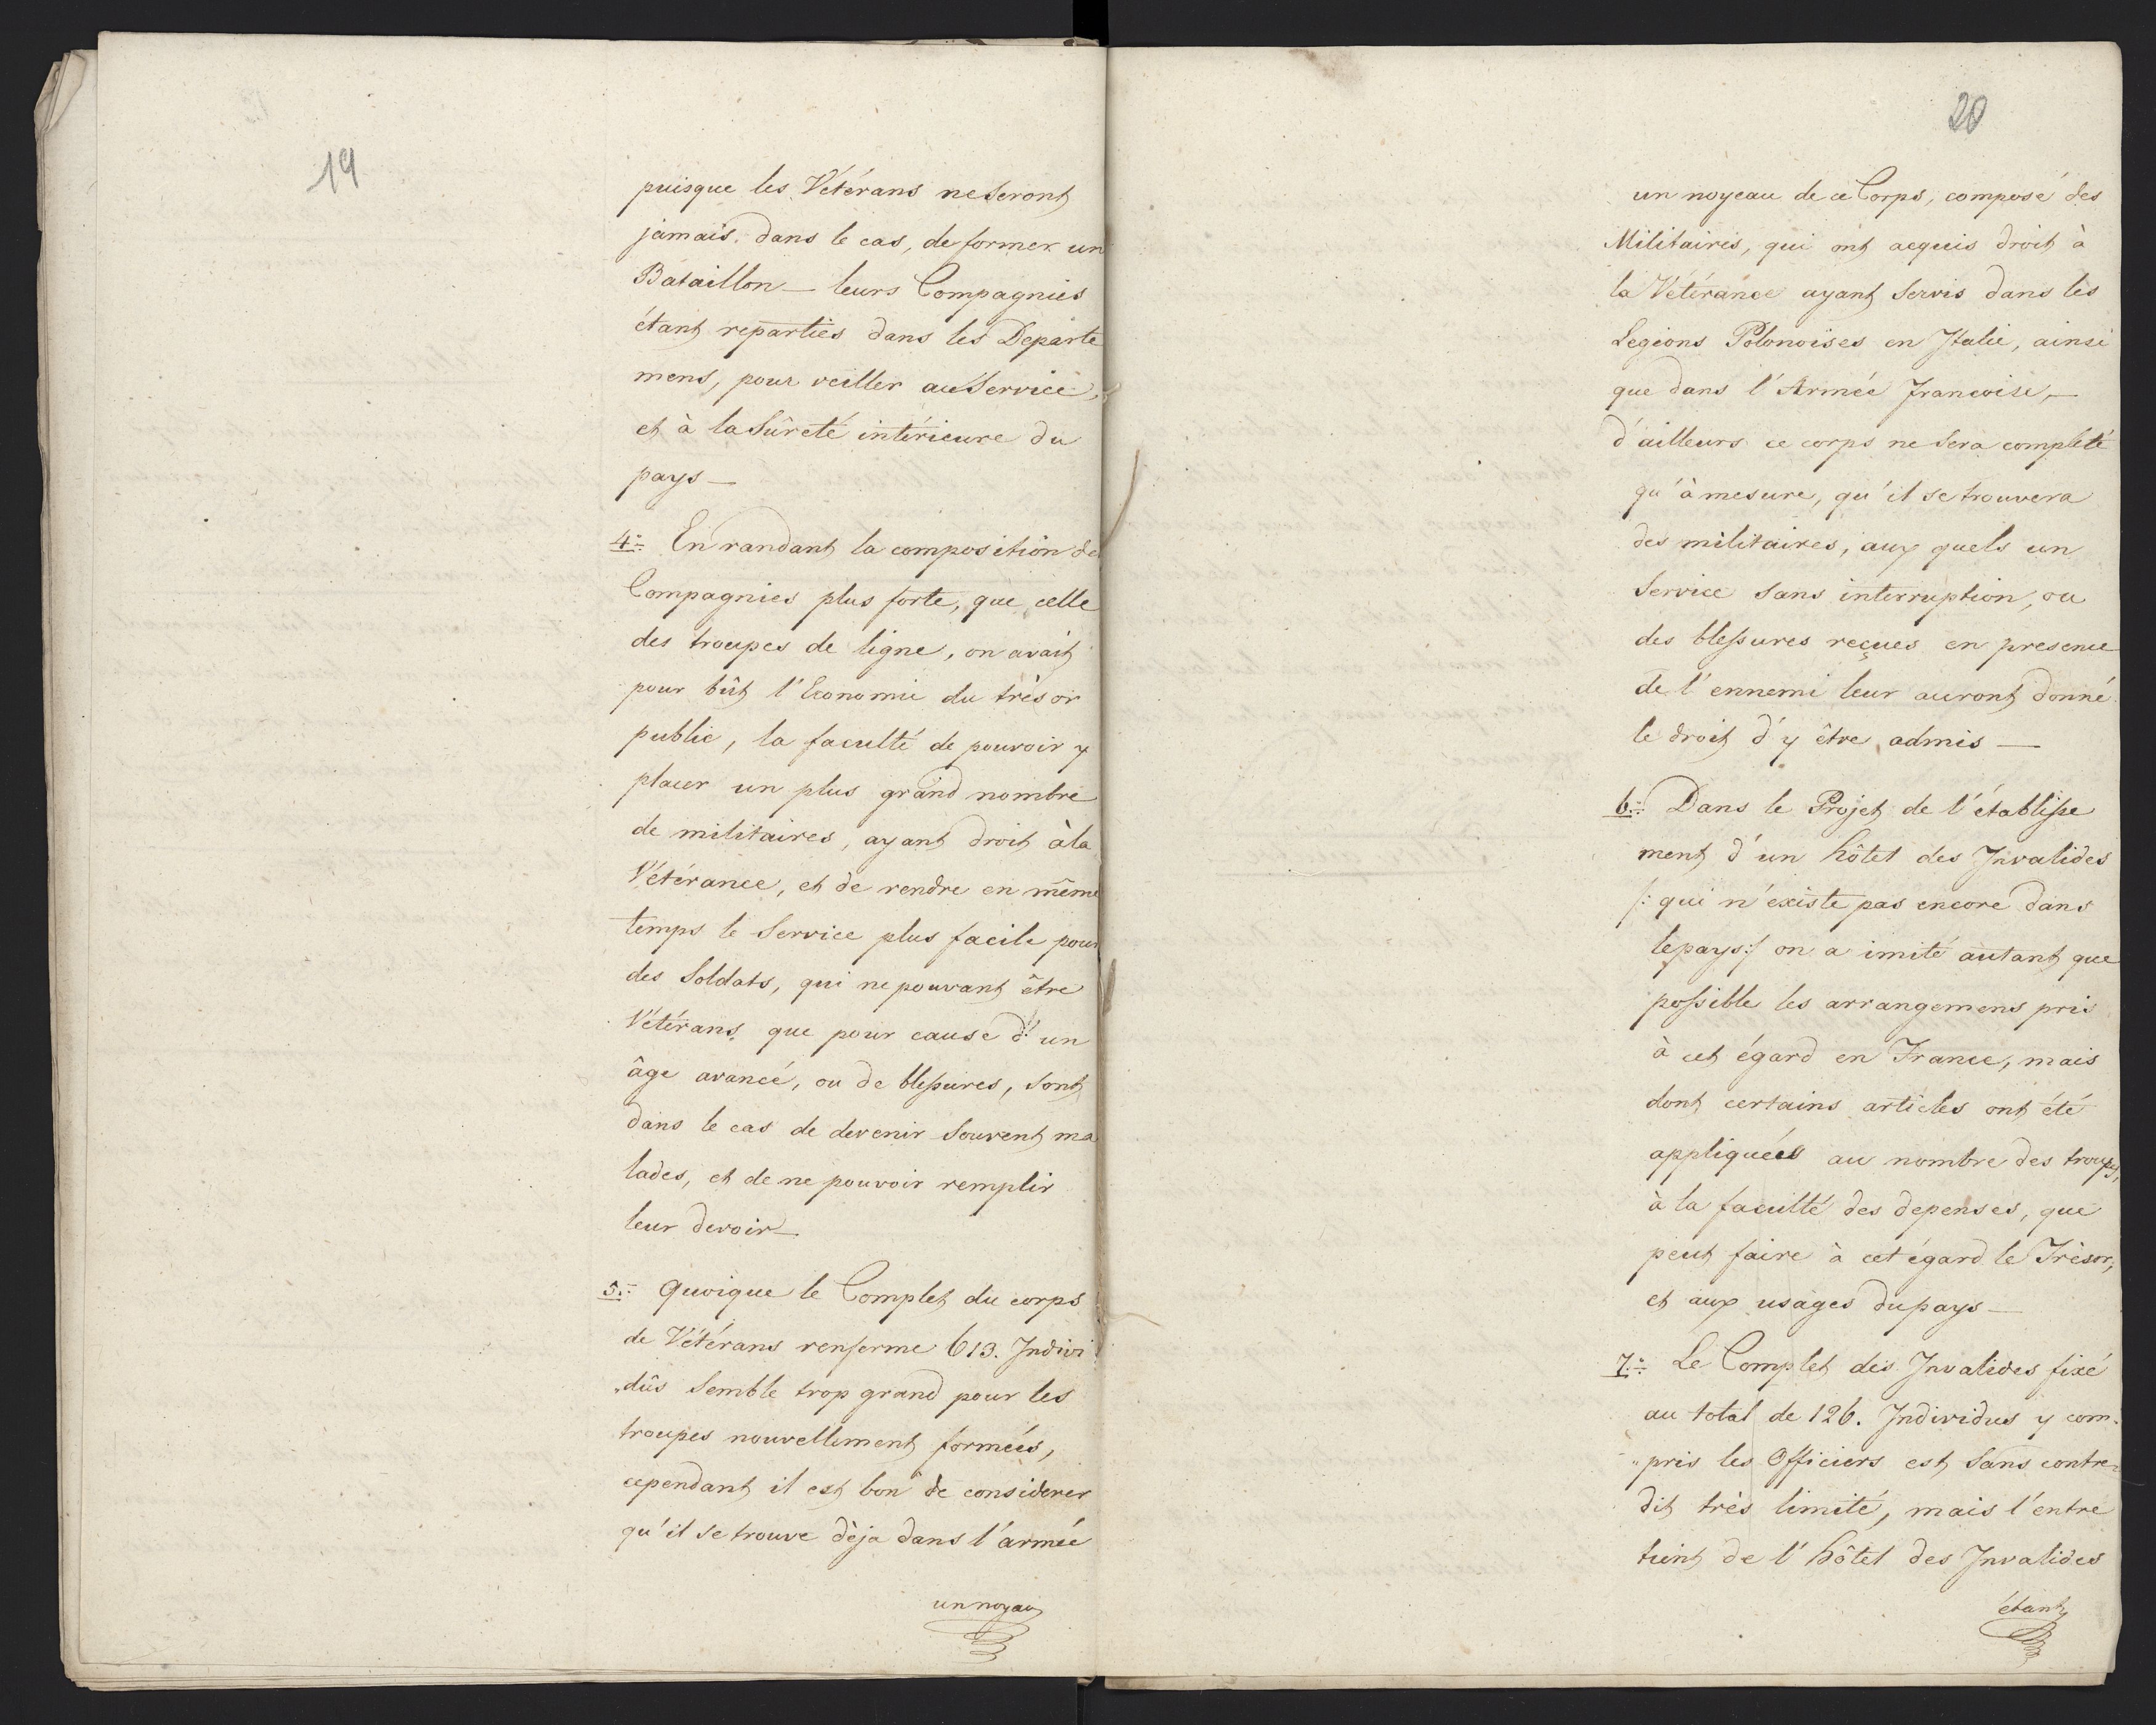 19
puisque les Vétérans ne seront
jamais dans le cas, de former un
Bataillon — leurs Compagnies
étant reparties dans les Departe
mens, pour veiller au Service,
et à la Sûreté intérieure du
pays —
4º En randant la composition de
Compagnies plus forte, que celle
des troupes de ligne, on avait
pour bût l'Economie du trèsor
public, la faculté de pouvoir y
placer un plus grand nombre
de militaires, ayant droit à la
Vétérance, et de rendre en même
temps le Service plus facile pour
des Soldats, qui ne pouvant être
Vétérans que pour cause d'un
âge avancé, ou de blessures, sont
dans le cas de devenir Souvent ma
lades, et de ne pouvoir remplir
leur devoir —
5º Quoique le Complet du corps
de Vétérans renferme 613. Indivi
„dûs Semble trop grand pour les
troupes nouvellement formées,
cependant il est bon de considerer
qu'il se trouve déja dans l'armée
un noyau
20
un noyeau de ce Corps, composé des
Militaires, qui ont acquis droit à
la Vétérance ayant Servis dans les
Legions Polonoises en Italie, ainsi
que dans l'Armée Francoise, —
d'ailleurs ce corps ne Sera completé
qu'à mesure, qu'il se trouvera
des militaires, aux quels un
Service sans interruption, ou
des blessures reçues en presence
de l'ennemi leur auront donné
le droit d'y être admis —
6º Dans le Projet de l'établisse
ment d'un hôtel des Invalides
/: qui n'éxiste pas encore dans
le pays :/ on a imité autant que
possible les arrangemens pris
à cet égard en France, mais
dont certains articles ont été
appliquées au nombre des troupes,
à la faculté des depenses, que
peut faire à cet égard le Trèsor,
et aux usages du pays —
7º Le Complet des Invalides fixé
au total de 126. Individus y com„
„pris les Officiers est Sans contre„
dit très limité, mais l'entre
tient de l'hôtel des Invalides
étant